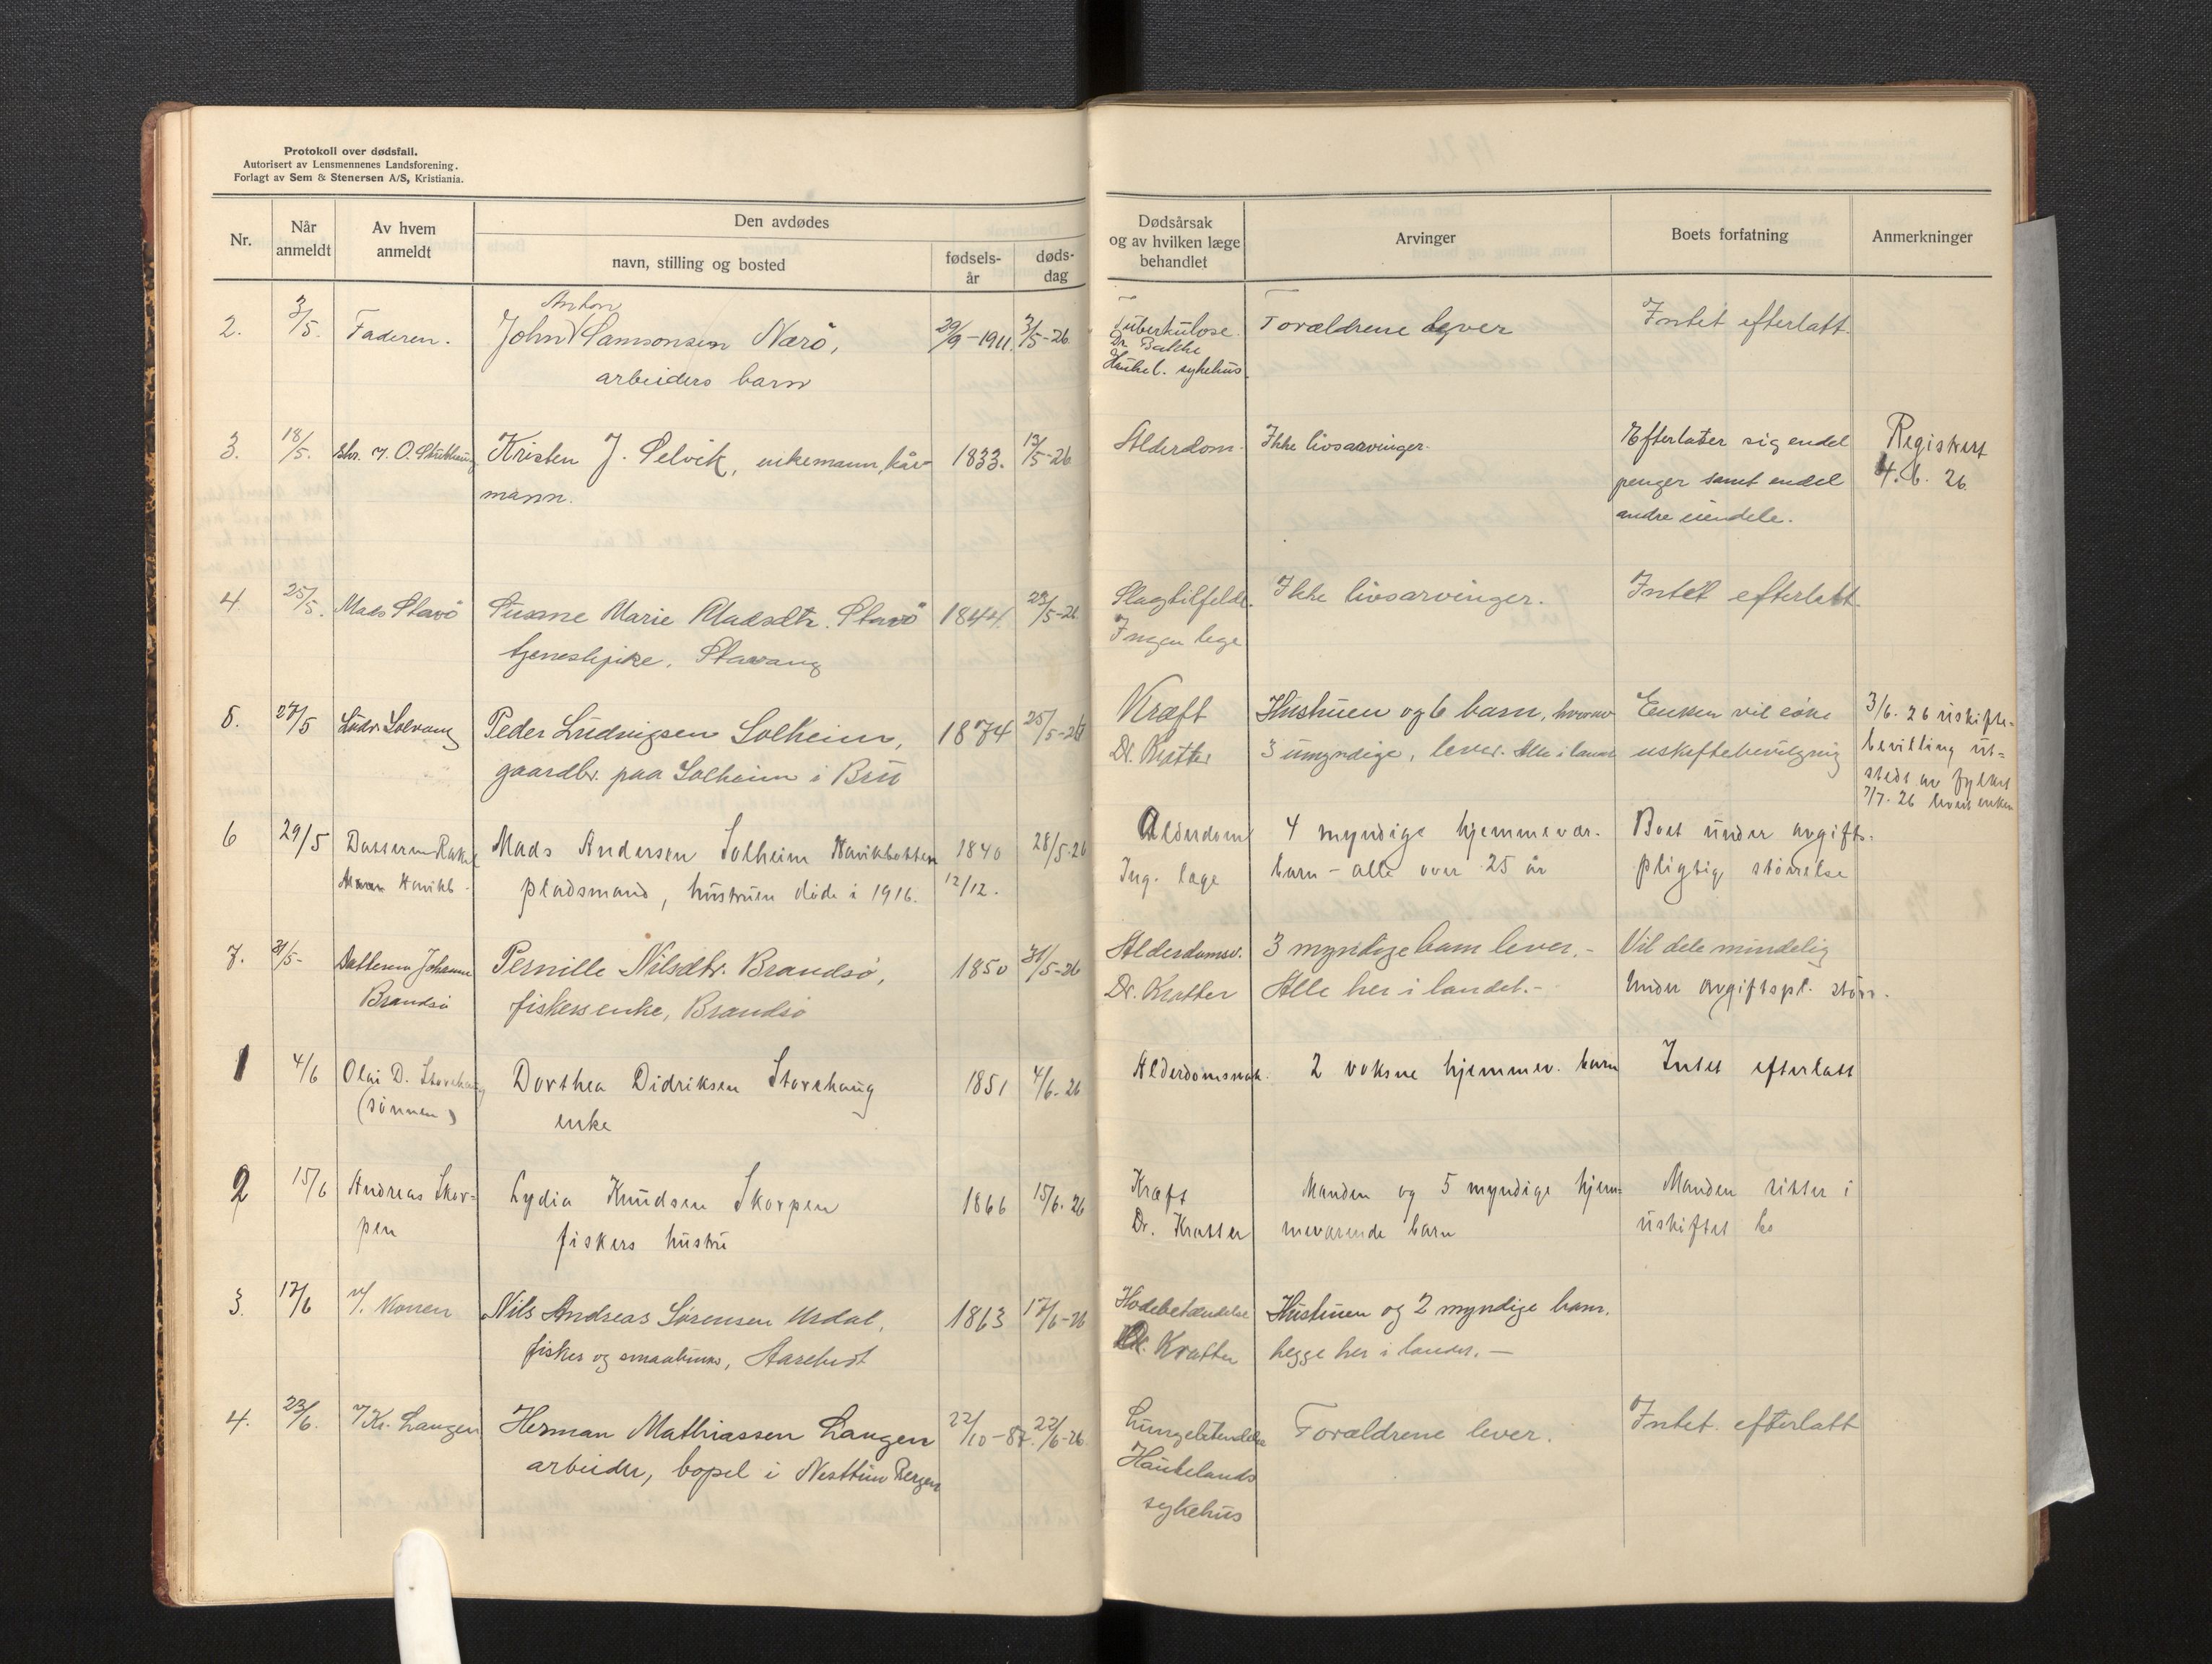 Protokoll over dødsfall.
Autorisert av Lensmennenes Landsforening.
Forlagt av Sem & Stenersen A/S, Kristiania.
Nr.
Når
anmeldt
Av hvem
anmeldt
Den avdødes
navn, stilling og bosted
fødsels-
år
døds-
dag
Dødsårsak
og av hvilken læge
behandlet
Arvinger
Boets forfatning
Anmerkninger
2. 3/5. Faderen. John Anton Samsonsen Nærö, 29/9-1911. 3/5-26 Tuberkulose. Forældrene lever Intet efterlatt
arbeiders barn Dr. Bakke
Haukel. sykehus.
3. 18/5. Kristen J. Selvik, enkemann, kår- 1833. 13/5-26 Alderdom. Ikke livsarvinger. Efterlater sig endel Registrert
mann. penger samt endel 4.6.26
andre eiendele.
4. 25/5. Mads Stavö Susane Marie Madsdtr. Stavö 1844. 23/5-26 Slagtilfelde. Ikke livsarvinger. Intet efterlatt
tjenestpike, Stavang Ingen lege
5. 27/5 Ludv. Solvang Peder Ludvigsen Solheim, 1874 25/5-26 Kræft Hustruen og 6 barn, hvorav Enken vil söke 3/6.26 uskifte-
gaardbr. paa Solheim i Bru Dr. Krøtter 3 umyndige, lever. Alle i landet uskiftebevilgning bevilling ut-
stedt av fylket
7/7.26 enken
6 29/5 Datteren Rakel Mads Andersen Solheim Havikbotten 1840 28/5-26 Alderdom 4 myndige hjemmevær. Boet under avgifts-
Havikb. pladsmand, hustruen døde i 1916. 12/12. Ing. læge barn - alle over 25 år pligtig størrelse
7. 31/5- Datteren Johanne Pernille Nilsdtr. Brandsö, 1850 31/5-26 Alderdomsv. 3 myndige barn lever. - Vil dele mindelig
Brandsö fiskers enke, Brandsö Dr. Krotter Alle her i landet. - Under avgiftspl. större.
1 4/6 Olai D. Storehaug Dorthea Didriksen Storehaug 1851 4/6.26 Alderdomsvak. 2 voksne hjemmev. barn Intet efterlatt
(sönnen) enke
2 15/6 Andreas Skor- Lydia Knudsen Skorpen 1866 15/6.26 Kræft Manden og 5 myndige hjem- Manden sitter i
pen fiskers hustru Dr. Krotter meværende barn uskiftet bo
3. 17/6 Nils Andreas Sørensen Urdal, 1863 17/6-26 Hodebetændelse Hustruen og 2 myndige barn.
fisker og smaabruks, Aarebrot Dr. Krotter begge her i landet. -
4. 23/6. Kr. Langen Herman Mathiassen Langen 22/10-87. 22/6-26 Lungebetendelse Forældrene lever. Intet efterlatt
arbeider, bopel i Nesttun Bergen Haukelands
sykehus